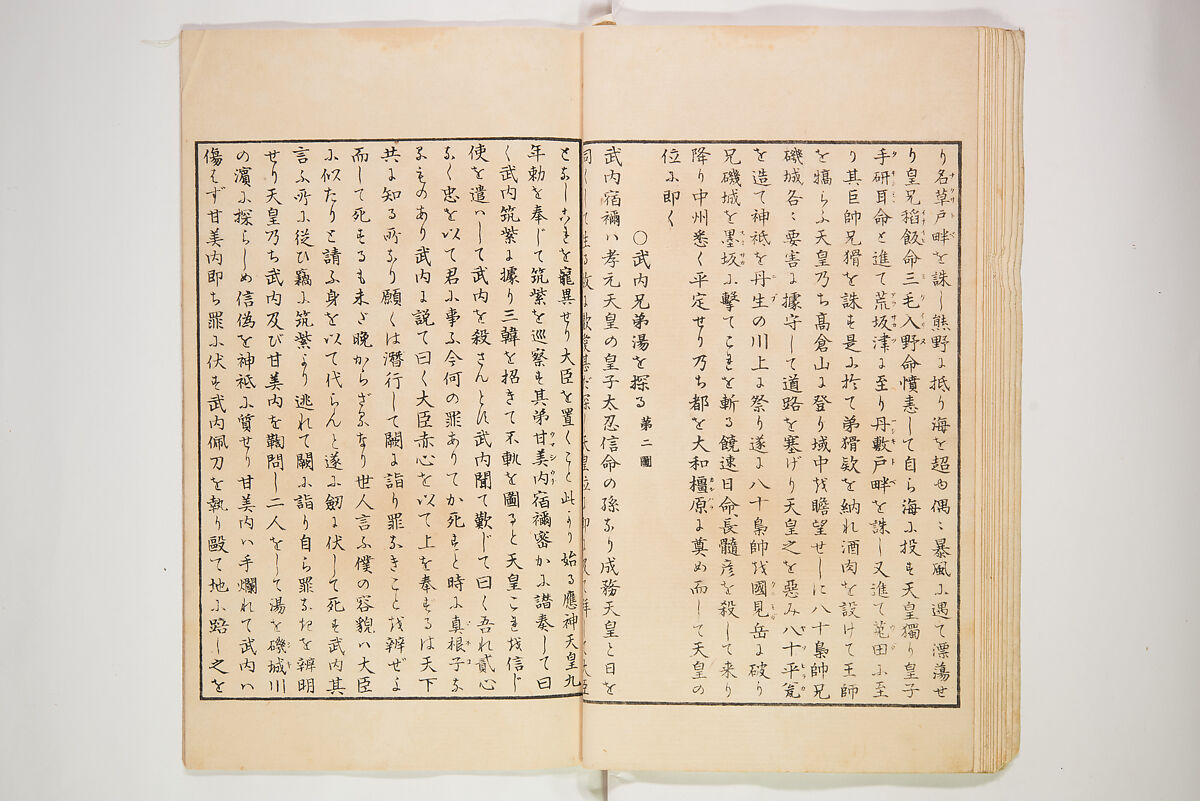 り名草戸畔を誅し熊野に抵り海を超ゆ偶〻暴風に遇て漂蕩せ
り皇兄稻飯命三毛入野命憤恚して自ら海に投も天皇獨り皇子
手研耳命と進て荒坂津に至り丹敷戸畔を誅し又進て菟田に至
り其巨帥兄猾を誅す是に於て弟猾欵を納れ酒肉を設けて王師
を犒らふ天皇乃ち高倉山に登り域中を瞻望せしに八十梟帥兄
磯城各〻要害に據守して道路を塞げり天皇之を惡み八十平瓮
を造て神祇を丹生の川上に祭り遂に八十梟帥を國見岳に破り
兄磯城を墨坂に擊てこれを斬る饒速日命長髓彥を殺して来り
降り中州悉く平定せり乃ち都を大和橿原に奠め而して天皇の
位に即く
〇武内兄弟湯を探る 第二圖
武内宿禰ハ孝元天皇の皇子太忍信命の孫なり成務天皇と日を
となしこれを寵異せり大臣を置くこと此より始る應神天皇九
年勅を奉じて筑紫を巡察す其弟甘美内宿禰密かに譖奏して曰
く武内筑紫に據り三韓を招きて不軌を圖ると天皇これを信じ
使を遣ハして武内を殺さんとす武内聞て歎じて曰く吾れ貳心
なく忠を以て君に事ふ今何の罪ありてか死すと時に真根子な
るものあり武内に説て曰く大臣赤心を以て上を奉するは天下
共に知る所なり願くは潛行して闕に詣り罪なきことを辨ぜよ
而して死するも未だ晩からざるなり世人言ふ僕の容貌ハ大臣
に似たりと請ふ身を以て代らんと遂に劒に伏して死す武内其
言ふ所に従ひ竊に筑紫より逃れて闕に詣り自ら罪なきを辨明
せり天皇乃ち武内及び甘美内を鞫問し二人をして湯を磯城川
の濱に探らしめ信偽を神祇に質せり甘美内ハ手爛れて武内ハ
傷はず甘美内即ち罪に伏す武内佩刀を執り毆て地に踣し之を